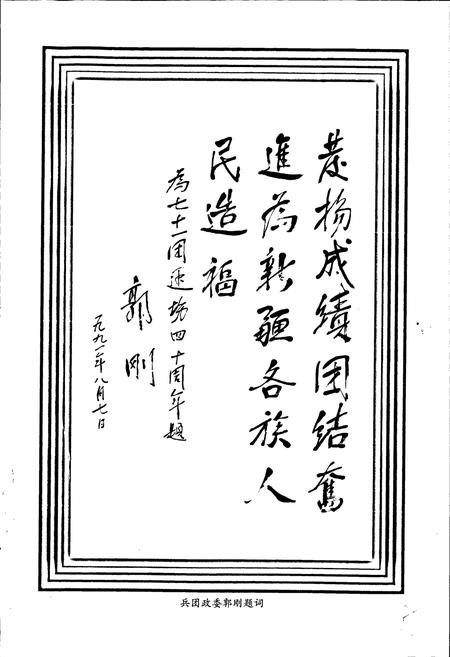 发扬成绩团结奋
進為新疆各族人
民造福
為七十一团建场四十周年题
郭刚
一九九二年八月七日
兵团政委郭刚题词